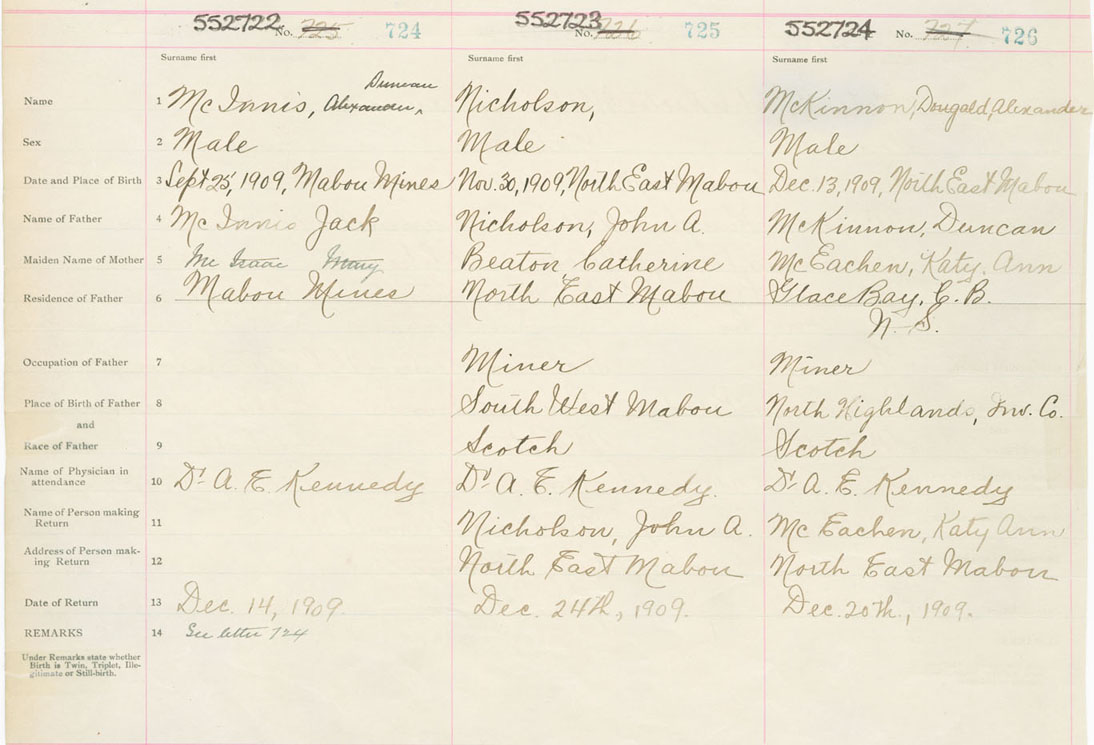 552722 No. 725 724 552723 No. 726 725 552724 No. 727 726
Surname first Surname first Surname first
Duncan
Name 1 McInnis, Alexander, ^ Nicholson, McKinnon, Dougald, Alexander
Sex 2 Male Male Male
Date and Place of Birth 3 Sept 25, 1909, Mabou Mines Nov. 30, 1909, North East Mabou Dec. 13, 1909, North East Mabou
Name of Father 4 McInnis Jack Nicholson, John A. McKinnon, Duncan
Maiden Name of Mother 5 McIsaac Mary Beaton Catherine McEachen, Katy Ann
Residence of Father 6 Mabou Mines North East Mabou Glace Bay, C. B.
N. S.
Occupation of Father 7 Miner Miner
Place of Birth of Father 8 South West Mabou North Highlands, Inv. Co.
and
Race of Father 9 Scotch Scotch
Name of Physician in
attendance 10 Dr A. E. Kennedy Dr A. E. Kennedy. Dr A. E. Kennedy
Name of Person making
Return 11 Nicholson, John A. McEachen, Katy Ann
Address of Person mak-
ing Return 12 North East Mabou North East Mabou
Date of Return 13 Dec. 14, 1909. Dec. 24th, 1909. Dec. 20th., 1909.
REMARKS 14 See letter 724
Under Remarks state whether
Birth is Twin, Triplet, Ille-
gitimate or Still-birth.